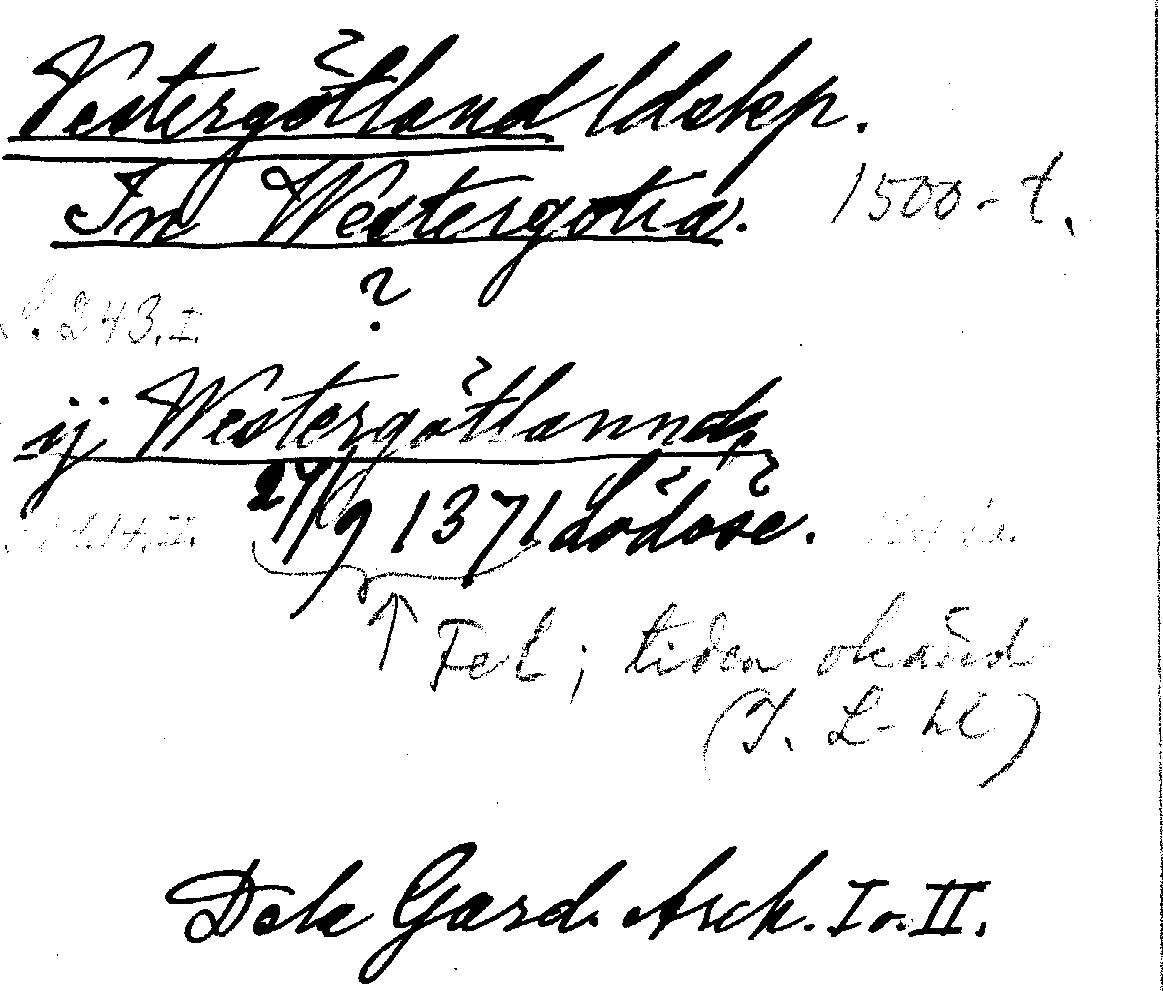 Vestergötland ldskp.
In Westergotia. 1500-t.
?
S. 243. I.
ij Westergötlannd
27/9 1371 Lödöse.
↑ Fel; tiden okänd
(I. L-hl)
Dela Gard. Arck. I o. II.